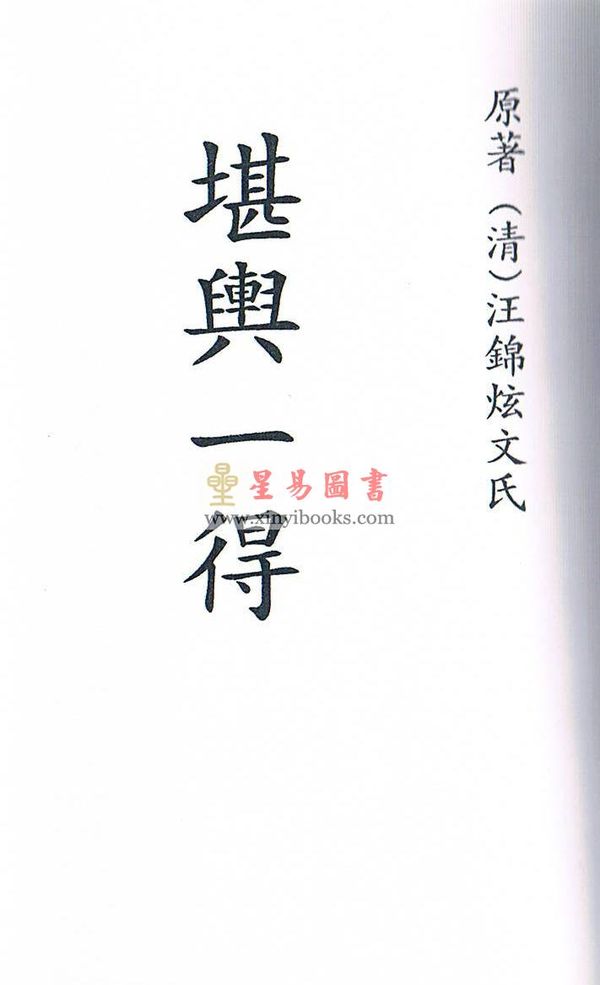 原著（清）汪錦炫文氏
堪輿一得
星易圖書
www.xinyibooks.com